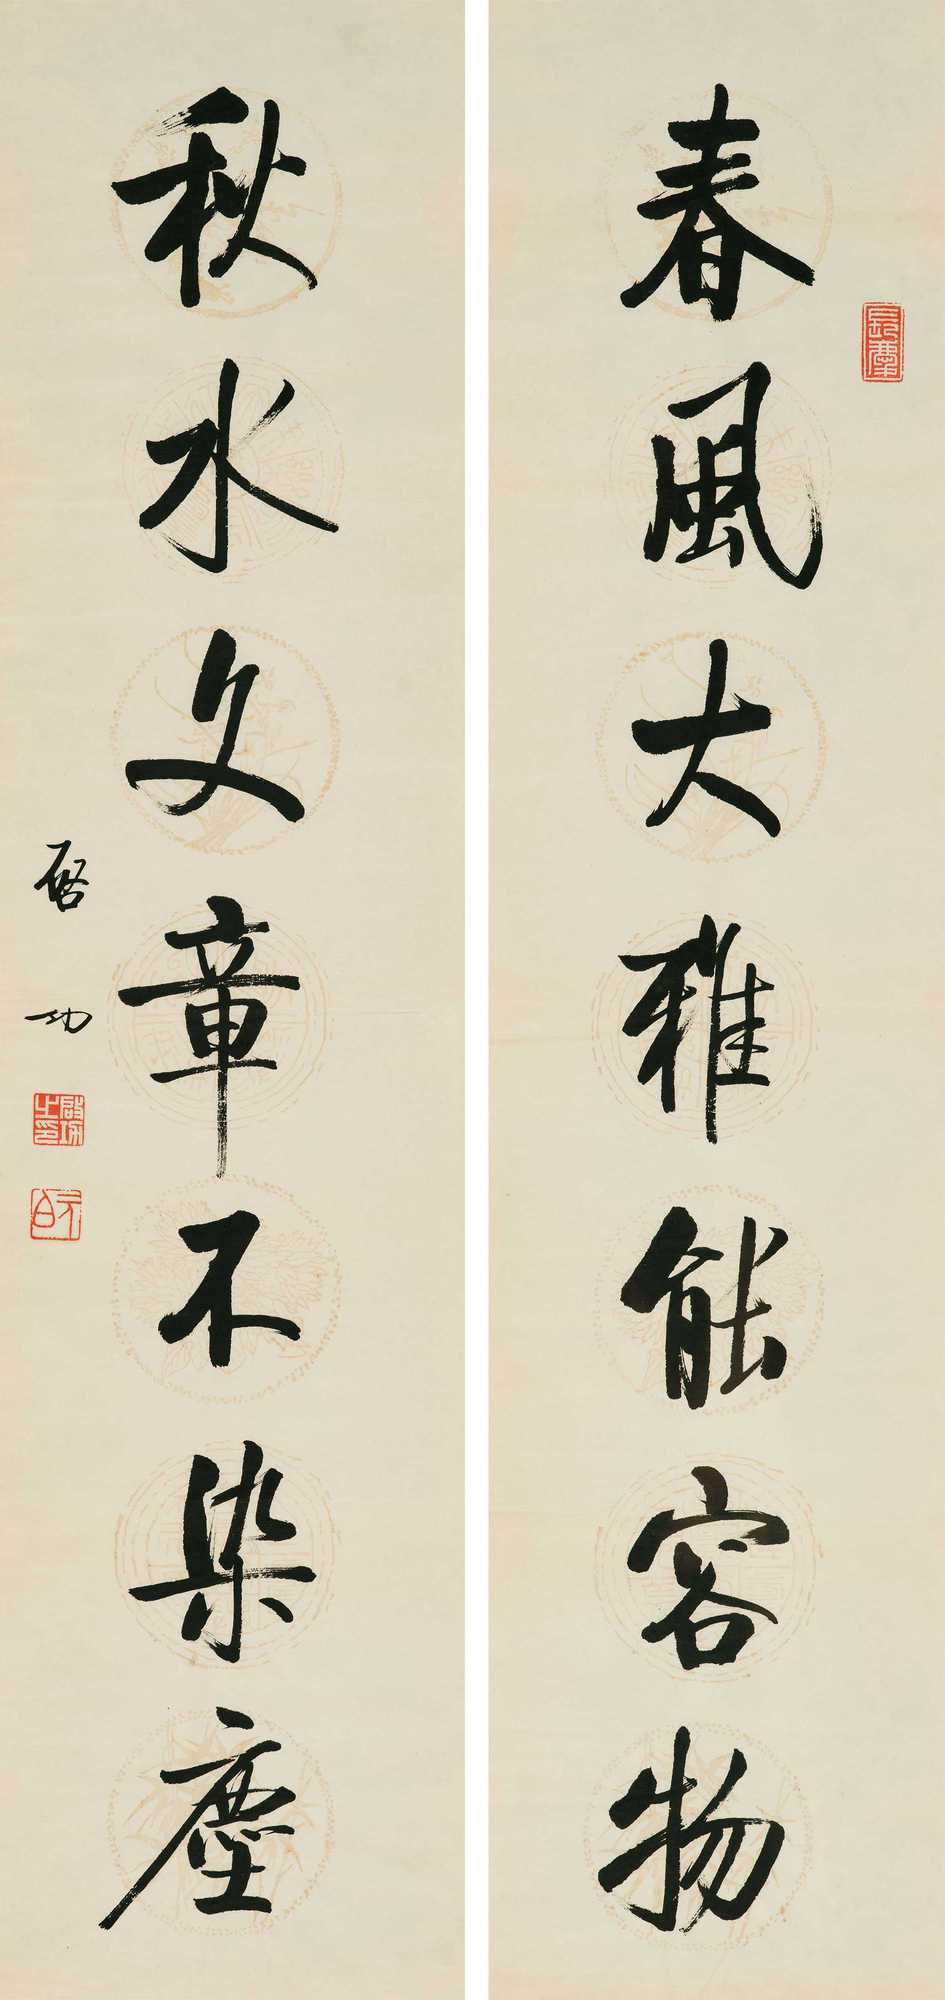 春風大雅能容物
秋水文章不染塵
启功
啟功之印
元白